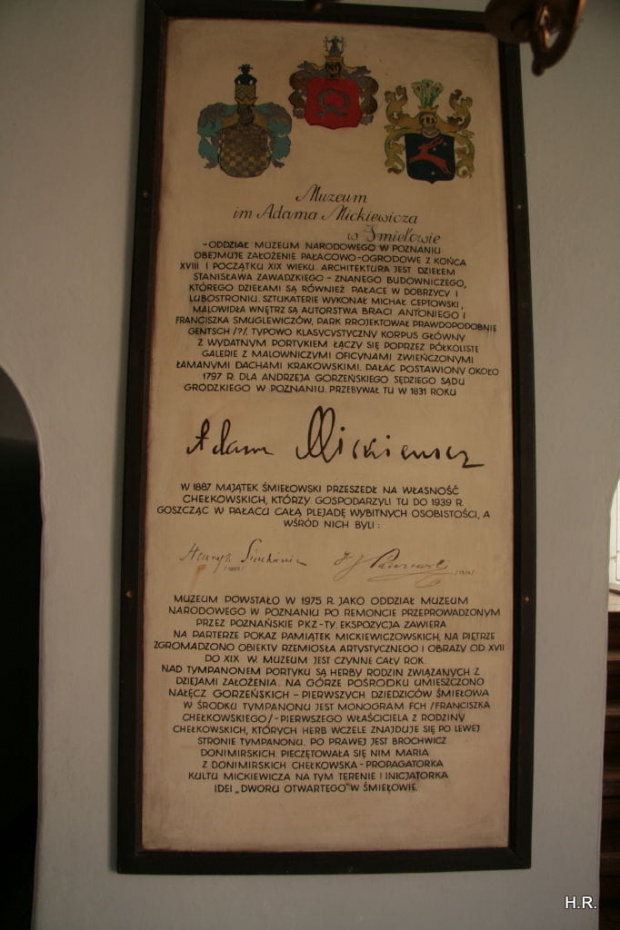 Muzeum
im Adama Mickiewicza
w Śmiełowie
-ODDZIAŁ MUZEUM NARODOWEGO W POZNANIU
OBEJMUJE ZAŁOŻENIE PAŁACOWO-OGRODOWE Z KOŃCA
XVIII I POCZĄTKU XIX WIEKU. ARCHITEKTURA JEST DZIEŁEM
STANISŁAWA ZAWADZKIEGO - ZNANEGO BUDOWNICZEGO,
KTÓREGO DZIEŁAMI SĄ RÓWNIEŻ PAŁACE W DOBRZYCY I
LUBOSTRONIU. SZTUKATERIE WYKONAŁ MICHAŁ CEPTOWSKI,
MALOWIDŁA WNĘTRZ SĄ AUTORSTWA BRACI ANTONIEGO I
FRANCISZKA SMUGLEWICZÓW, PARK RROJEKTOWAŁ PRAWDOPODOBNIE
GENTSCH /?/. TYPOWO KLASYCYSTYCZNY KORPUS GŁÓWNY
Z WYDATNYM PORTYKIEM ŁĄCZY SIĘ POPRZEZ PÓŁKOLISTE
GALERIE Z MALOWNICZYMI OFICYNAMI ZWIEŃCZONYMI
ŁAMANYMI DACHAMI KRAKOWSKIMI. PAŁAC POSTAWIONY OKOŁO
1797 R. DLA ANDRZEJA GORZEŃSKIEGO SĘDZIEGO SĄDU
GRODZKIEGO W POZNANIU. PRZEBYWAŁ TU W 1831 ROKU
Adam Mickiewicz
W 1887 MAJĄTEK ŚMIEŁOWSKI PRZESZEDŁ NA WŁASNOŚĆ
CHEŁKOWSKICH, KTÓRZY GOSPODARZYLI TU DO 1939 R.
GOSZCZĄC W PAŁACU CAŁĄ PLEJADĘ WYBITNYCH OSOBISTOŚCI, A
WŚRÓD NICH BYLI :
Henryk Sienkiewicz
I J Paderewski
MUZEUM POWSTAŁO W 1975 R. JAKO ODDZIAŁ MUZEUM
NARODOWEGO W POZNANIU PO REMONCIE PRZEPROWADZONYM
PRZEZ POZNAŃSKIE PKZ-TY. EKSPOZYCJA ZAWIERA
NA PARTERZE POKAZ PAMIĄTEK MICKIEWICZOWSKICH, NA PIĘTRZE
ZGROMADZONO OBIEKTY RZEMIOSŁA ARTYSTYCZNEGO I OBRAZY OD XVII
DO XIX W. MUZEUM JEST CZYNNE CAŁY ROK.
NAD TYMPANONEM PORTYKU SĄ HERBY RODZIN ZWIĄZANYCH Z
DZIEJAMI ZAŁOŻENIA. NA GÓRZE POŚRODKU UMIESZCZONO
NAŁĘCZ GORZEŃSKICH - PIERWSZYCH DZIEDZICÓW ŚMIEŁOWA
W ŚRODKU TYMPANONU JEST MONOGRAM FCH /FRANCISZKA
CHEŁKOWSKIEGO/ - PIERWSZEGO WŁAŚCICIELA Z RODZINY
CHEŁKOWSKICH, KTÓRYCH HERB WCZELE ZNAJDUJE SIĘ PO LEWEJ
STRONIE TYMPANONU. PO PRAWEJ JEST BROCHWICZ
DONIMIRSKICH. PIECZĘTOWAŁA SIĘ NIM MARIA
Z DONIMIRSKICH CHEŁKOWSKA - PROPAGATORKA
KULTU MICKIEWICZA NA TYM TERENIE I INICJATORKA
IDEI „DWORU OTWARTEGO” W ŚMIEŁOWIE.
H.R.